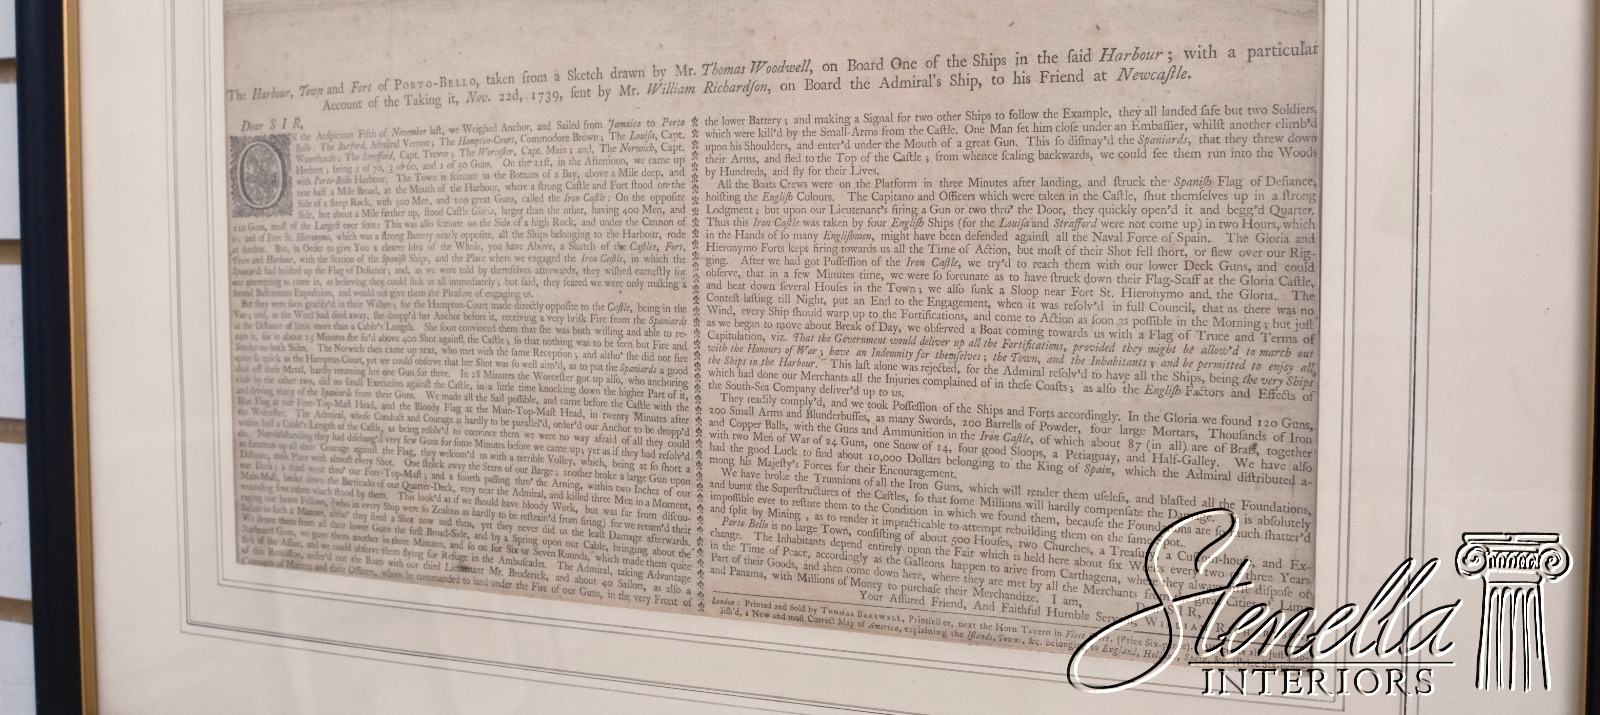 The Harbour, Town and Fort of PORTO-BELLO, taken from a Sketch drawn by Mr. Thomas Woodwell, on Board One of the Ships in the ſaid Harbour; with a particular
Account of the Taking it, Nov. 22d, 1739, ſent by Mr. William Richardſon, on Board the Admiral's Ship, to his Friend at Newcaſtle.
Dear SIR,
ON the Auſpicious Fifth of November laſt, we Weighed Anchor, and Sailed from Jamaica to Porto
Bello: The Burford, Admiral Vernon; The Hampton-Court, Commodore Brown; The Louiſa, Capt.
Waterhouſe; The Strafford, Capt. Trevor; The Worceſter, Capt. Main; and, The Norwich, Capt.
Herbert; being 1 of 70, 3 of 60, and 1 of 50 Guns. On the 21ſt, in the Afternoon, we came up
with Porto-Bello Harbour. The Town is ſcituate in the Bottom of a Bay, above a Mile deep, and
near half a Mile Broad, at the Mouth of the Harbour, where a ſtrong Caſtle and Fort ſtood on the
Side of a ſteep Rock, with 300 Men, and 100 great Guns, called the Iron Caſtle: On the oppoſite
Side, but about a Mile farther up, ſtood Caſtle Gloria, larger than the other, having 400 Men, and
120 Guns, moſt of the Largeſt ever ſeen: This was alſo ſcituate on the Side of a high Rock, and under the Cannon of
it; and of Fort St. Hieronymo, which was a ſtrong Battery nearly oppoſite, all the Ships belonging to the Harbour, rode
at Anchor. But, in Order to give You a clearer Idea of the Whole, you have Above, a Sketch of the Caſtles, Fort,
Town and Harbour, with the Station of the Spaniſh Ships, and the Place where we engaged the Iron Caſtle, in which the
Spaniards had hoiſted up the Flag of Defiance; and, as we were told by themſelves afterwards, they wiſhed earneſtly for
our attempting to come in, as believing they could ſink us all immediately; but ſaid, they feared we were only making a
ſecond Baſtimentos Expedition, and would not give them the Pleaſure of engaging us.
But they were ſoon gratify'd in their Wiſhes; for the Hampton-Court made directly oppoſite to the Caſtle, being in the
Van; and, as the Wind had died away, ſhe dropp'd her Anchor before it, receiving a very briſk Fire from the Spaniards
at the Diſtance of little more than a Cable's Length. She ſoon convinced them that ſhe was both willing and able to re-
turn it, for in about 25 Minutes ſhe fir'd above 400 Shot againſt the Caſtle; ſo that nothing was to be ſeen but Fire and
Smoke on both Sides. The Norwich then came up next, who met with the ſame Reception; and altho' ſhe did not fire
quite ſo quick as the Hampton-Court, yet we could obſerve that her Shot was ſo well aim'd, as to put the Spaniards a good
deal off their Metal, hardly returning her one Gun for three. In 28 Minutes the Worceſter got up alſo, who anchoring
cloſe by the other two, did no ſmall Execution againſt the Caſtle, in a little time knocking down the higher Part of it,
and driving many of the Spaniards from their Guns. We made all the Sail poſſible, and came before the Caſtle with the
Blue Flag at our Fore-Top-Maſt Head, and the Bloody Flag at the Main-Top-Maſt Head, in twenty Minutes after
the Worceſter. The Admiral, whoſe Conduct and Courage is hardly to be parallel'd, order'd our Anchor to be dropp'd
within half a Cable's Length of the Caſtle, as being reſolv'd to convince them we were no way afraid of all they could
do. Notwithſtanding they had diſcharg'd very few Guns for ſome Minutes before we came up; yet as if they had reſolv'd
to ſummon up all their Courage againſt the Flag, they welcom'd us with a terrible Volley, which, being at ſo ſhort a
Diſtance, took Place with almoſt every Shot. One ſtruck away the Stern of our Barge; another broke a large Gun upon
our Deck; a third went thro' our Fore-Top-Maſt; and a fourth paſſing thro' the Arning, within two Inches of our
Main-Maſt, broke down the Barricado of our Quarter-Deck, very near the Admiral, and killed three Men in a Moment,
wounding five others which ſtood by them. This look'd as if we ſhould have bloody Work, but was far from diſcou-
raging our brave Fellows, (who in every Ship were ſo Zealous as hardly to be reſtrain'd from firing) for we return'd their
Salute in ſuch a Manner, altho' they fired a Shot now and then, yet they never did us the leaſt Damage afterwards.
We drove them from all their lower Guns the firſt Broad-Side, and by a Spring upon our Cable, bringing about the
Starboard Guns, we gave them another in three Minutes, and ſo on for Six or Seven Rounds, which made them quite
ſick of the Affair, and we could obſerve them flying for Refuge in the Ambuſcades. The Admiral, taking Advantage
of this Remiſſion, order'd out the Boats with our third Lieutenant Mr. Broderick, and about 40 Sailors, as alſo a
Company of Marines and their Officers, whom he commanded to land under the Fire of our Guns, in the very Front of
the lower Battery; and making a Signal for two other Ships to follow the Example, they all landed ſafe but two Soldiers,
which were kill'd by the Small-Arms from the Caſtle. One Man ſet him cloſe under an Embaſſier, whilſt another climb'd
upon his Shoulders, and enter'd under the Mouth of a great Gun. This ſo diſmay'd the Spaniards, that they threw down
their Arms, and fled to the Top of the Caſtle; from whence ſcaling backwards, we could ſee them run into the Woods
by Hundreds, and fly for their Lives.
All the Boats Crews were on the Platform in three Minutes after landing, and ſtruck the Spaniſh Flag of Defiance,
hoiſting the Engliſh Colours. The Capitano and Officers which were taken in the Caſtle, ſhut themſelves up in a ſtrong
Lodgment; but upon our Lieutenant's firing a Gun or two thro' the Door, they quickly open'd it and begg'd Quarter.
Thus this Iron Caſtle was taken by four Engliſh Ships (for the Louiſa and Strafford were not come up) in two Hours, which
in the Hands of ſo many Engliſhmen, might have been defended againſt all the Naval Force of Spain. The Gloria and
Hieronymo Forts kept firing towards us all the Time of Action, but moſt of their Shot fell ſhort, or flew over our Rig-
ging. After we had got Poſſeſſion of the Iron Caſtle, we try'd to reach them with our lower Deck Guns, and could
obſerve, that in a few Minutes time, we were ſo fortunate as to have ſtruck down their Flag-Staff at the Gloria Caſtle,
and beat down ſeveral Houſes in the Town; we alſo ſunk a Sloop near Fort St. Hieronymo and the Gloria. The
Conteſt laſting till Night, put an End to the Engagement, when it was reſolv'd in full Council, that as there was no
Wind, every Ship ſhould warp up to the Fortifications, and come to Action as ſoon as poſſible in the Morning; but juſt
as we began to move about Break of Day, we obſerved a Boat coming towards us with a Flag of Truce and Terms of
Capitulation, viz. That the Government would deliver up all the Fortifications, provided they might be allow'd to march out
with the Honours of War; have an Indemnity for themſelves; the Town, and the Inhabitants; and be permitted to enjoy all
the Ships in the Harbour. This laſt alone was rejected, for the Admiral reſolv'd to have all the Ships, being the very Ships
which had done our Merchants all the Injuries complained of in theſe Coaſts; as alſo the Engliſh Factors and Effects of
the South-Sea Company deliver'd up to us.
They readily comply'd, and we took Poſſeſſion of the Ships and Forts accordingly. In the Gloria we found 120 Guns,
200 Small Arms and Blunderbuſſes, as many Swords, 200 Barrells of Powder, four large Mortars, Thouſands of Iron
and Copper Balls, with the Guns and Ammunition in the Iron Caſtle, of which about 87 (in all) are of Braſs, together
with two Men of War of 24 Guns, one Snow of 14, four good Sloops, a Petiaguay, and Half-Galley. We have alſo
had the good Luck to find about 10,000 Dollars belonging to the King of Spain, which the Admiral diſtributed a-
mong his Majeſty's Forces for their Encouragement.
We have broke the Trunnions of all the Iron Guns, which will render them uſeleſs, and blaſted all the Foundations,
and burnt the Superſtructures of the Caſtles, ſo that ſome Millions will hardly compenſate the Damage. It is abſolutely
impoſſible ever to reſtore them to the Condition in which we found them, becauſe the Foundations are ſo much ſhatter'd
and ſplit by Mining, as to render it impracticable to attempt rebuilding them on the ſame ſpot.
Porto Bello is no large Town, conſiſting of about 500 Houſes, two Churches, a Treaſury, a Cuſtom-houſe, and Ex-
change. The Inhabitants depend entirely upon the Fair which is held here about ſix Weeks every two or three Years
in the Time of Peace, accordingly as the Galleons happen to arrive from Carthagena, where they always diſpoſe of
Part of their Goods, and then come down here, where they are met by all the Merchants from great Cities of Lima
and Panama, with Millions of Money to purchaſe their Merchandize. I am, SIR,
Your Aſſured Friend, And Faithful Humble Servant,
London: Printed and Sold by THOMAS BAKEWELL, Printſeller, next the Horn Tavern in Fleet-ſtreet, (Price Six-pence)
liſh'd, a New and moſt Correct Map of America, explaining the Iſlands, Towns, &c. belonging to England, Holland, Spain, &c. (Price Six-pence
Stenella
INTERIORS